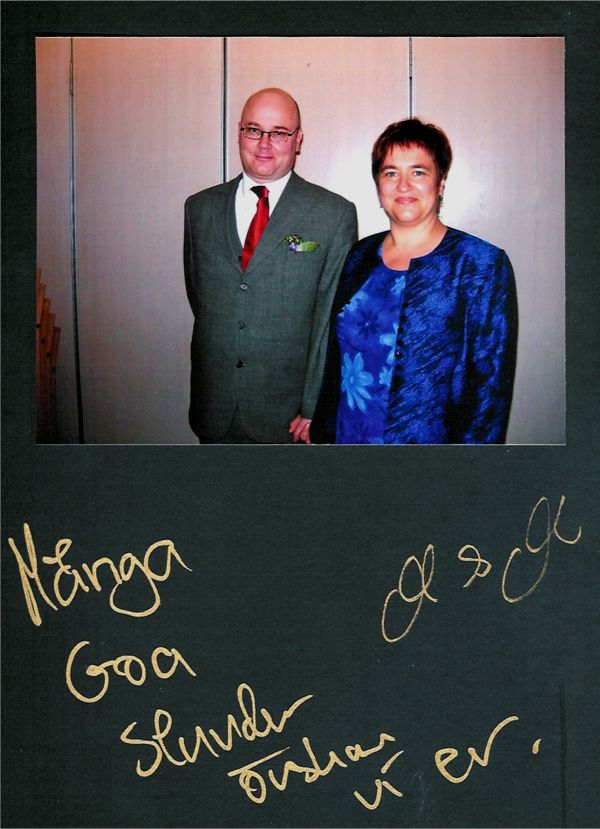 Många
Goa
Stunder
önskar
vi er.